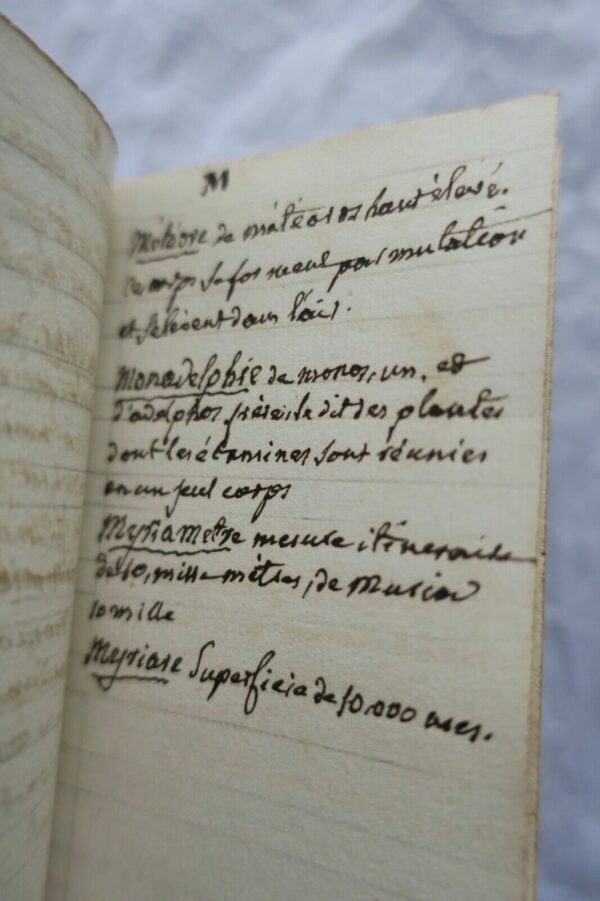 M
Météore de météoros haut élevé.
ce corps se for ment par mutation
et s'elevent dans l'air.
Monadelphie de monos, un, et
d'adelphos frère, se dit des plantes
dont les étamines sont réunies
en un seul corps
Myriametre mesure itineraire
de 10, mille mètres, de Murioi
10 mille
Myriare Superficie de 10.000 ares.